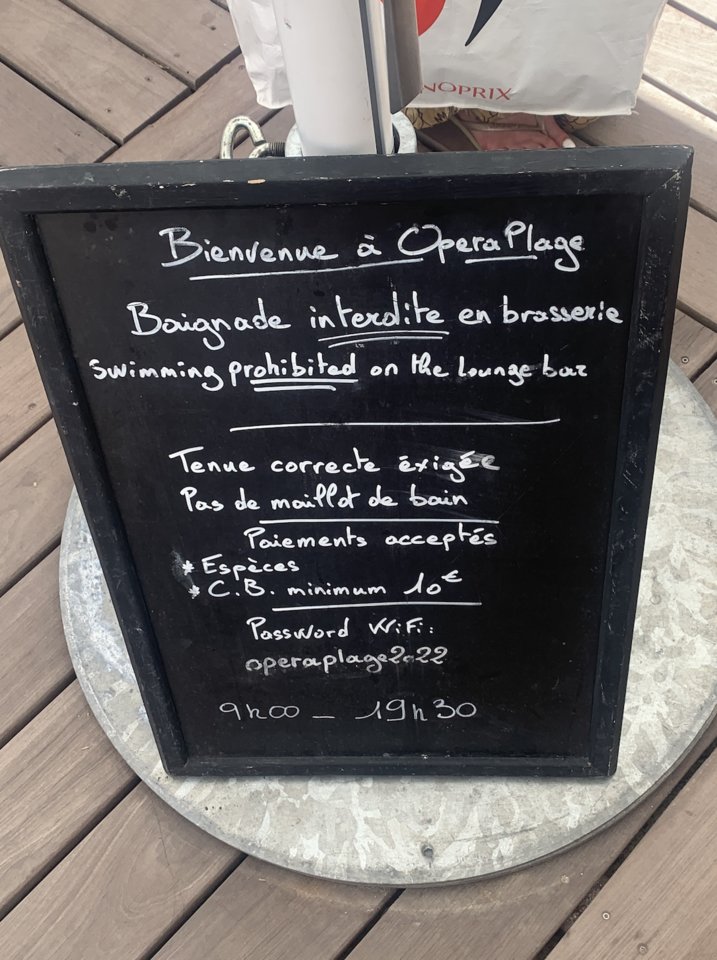 NOPRIX
Bienvenue à OperaPlage
Baignade interdite en brasserie
Swimming prohibited on the lounge bar
Tenue correcte éxigée
Pas de maillot de bain
Paiements acceptés
* Espèces
* C.B. minimum 10€
Password WiFi:
operaplage2022
9h00 - 19h30